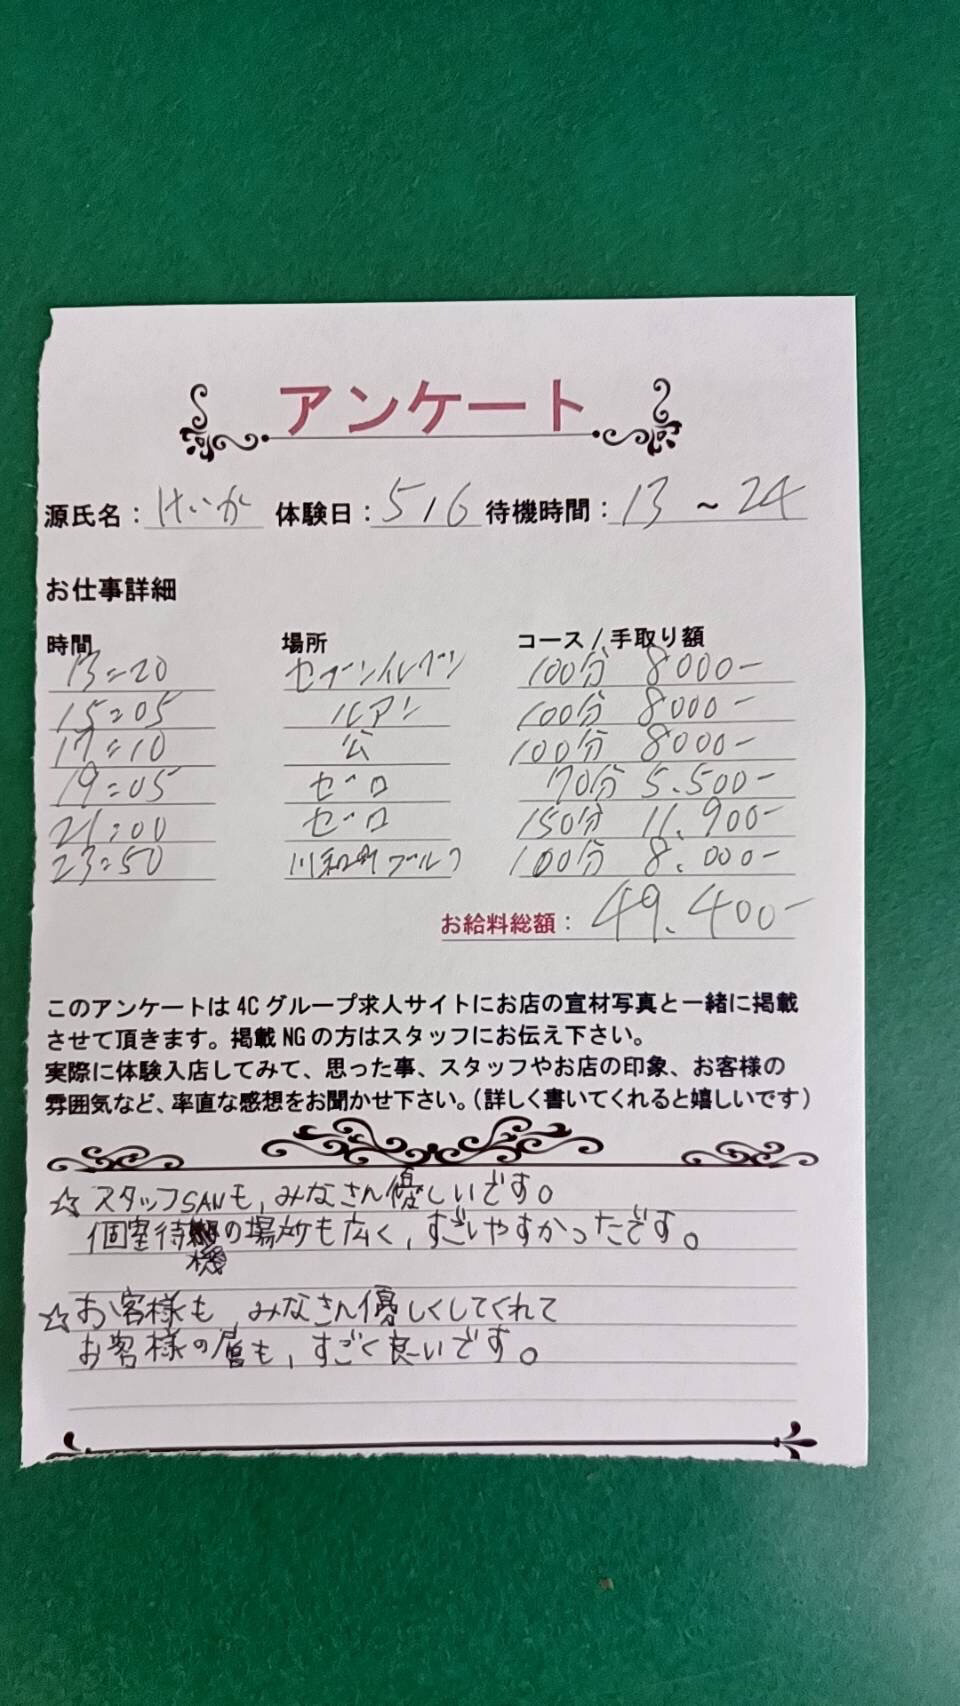 アンケート
源氏名：けいか 体験日：5/6 待機時間：13 ～ 24
お仕事詳細
時間 場所 コース / 手取り額
13:20 セブンイレブン 100分 8000-
15:05 ルアン 100分 8000-
17:10 公 100分 8000-
19:05 ゼロ 70分 5.500-
21:00 ゼロ 150分 11.900-
23:50 川和町 100分 8.000-
お給料総額：49.400-
このアンケートは 4C グループ求人サイトにお店の宣材写真と一緒に掲載
させて頂きます。掲載 NG の方はスタッフにお伝え下さい。
実際に体験入店してみて、思った事、スタッフやお店の印象、お客様の
雰囲気など、率直な感想をお聞かせ下さい。（詳しく書いてくれると嬉しいです）
☆スタッフSANも、みなさん優しいです。
個室待機の場所も広く、すごしやすかったです。
☆お客様も、みなさん優しくしてくれて
お客様の層も、すごく良いです。